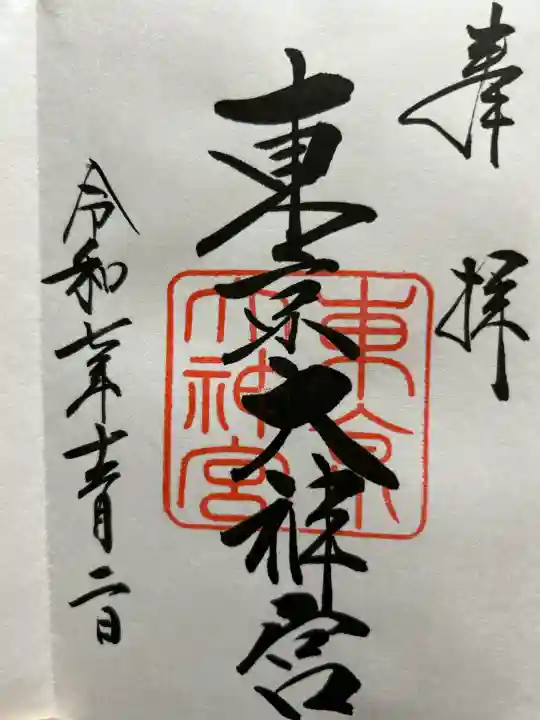 奉拝
東京大神宮
東京
大神宮
令和七年十一月二日